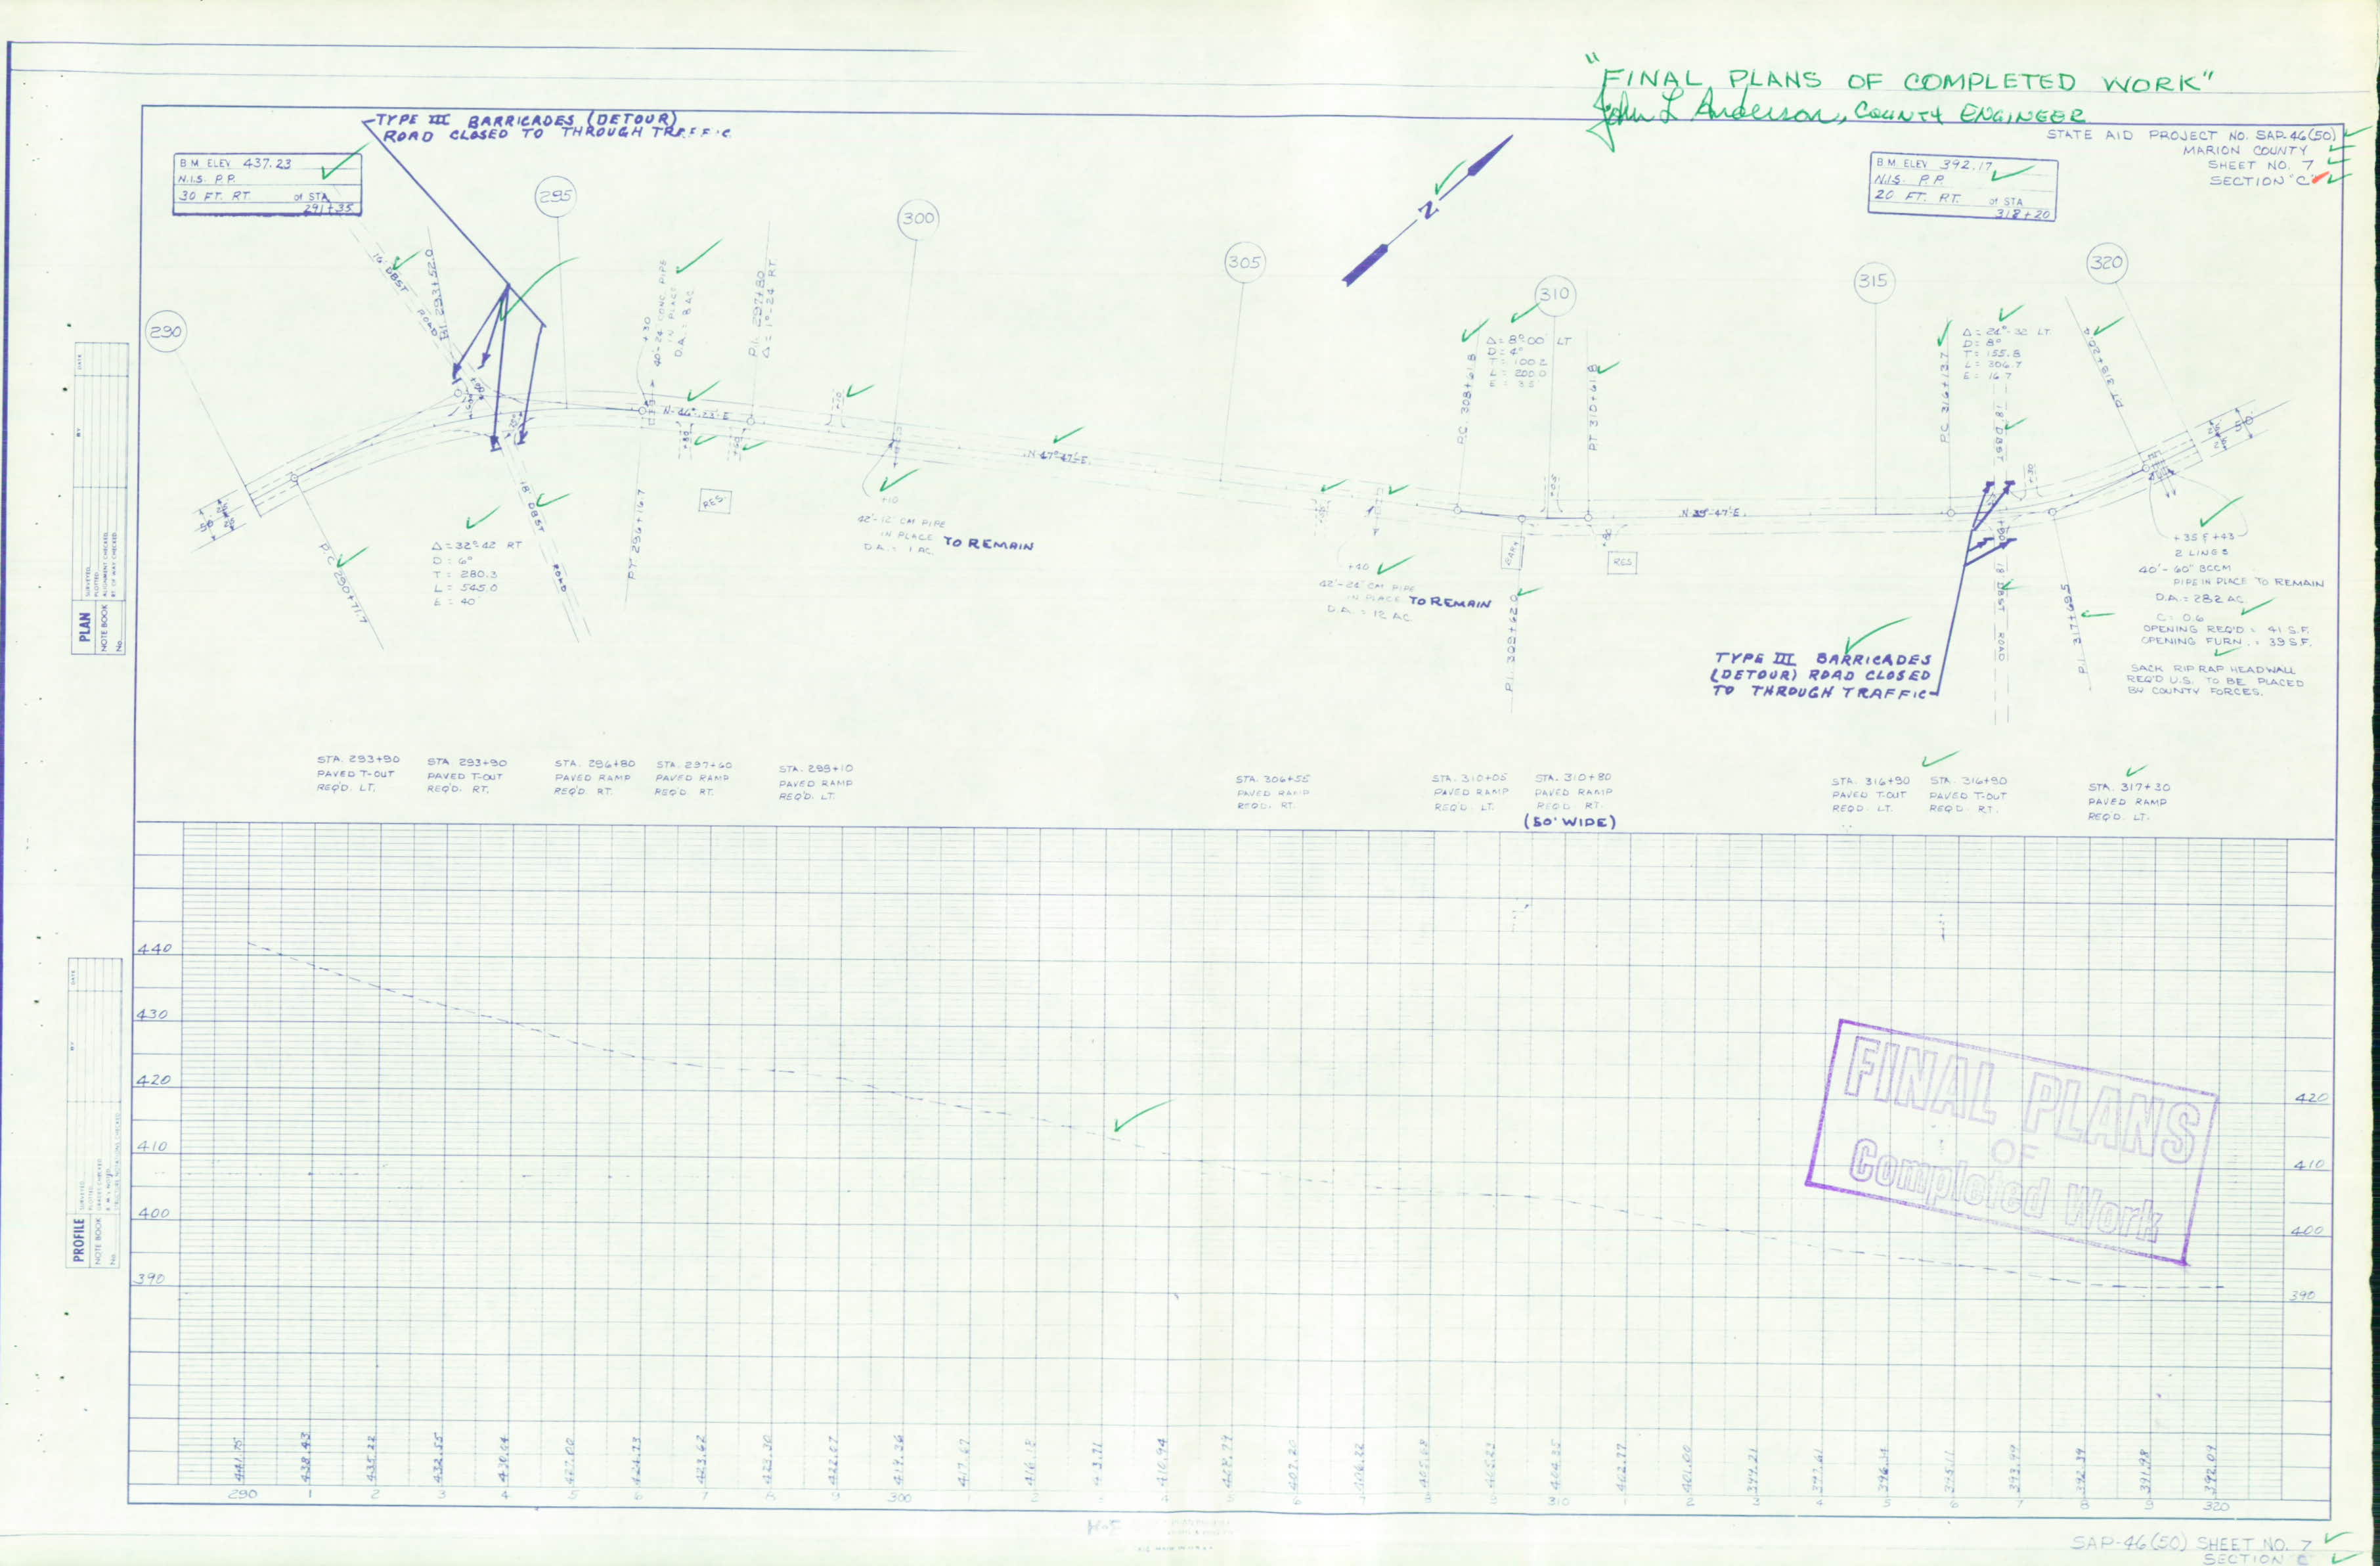 "FINAL PLANS OF COMPLETED WORK"
John L Anderson, COUNTY ENGINEER
STATE AID PROJECT NO. SAP-46(50)
MARION COUNTY
SHEET NO. 7
SECTION "C"
TYPE III BARRICADES (DETOUR)
ROAD CLOSED TO THROUGH TRAFFIC
B.M. ELEV. 437.23
N.I.S. P.P.
30 FT. RT. of STA
291+35
B.M. ELEV. 392.17
N.I.S. P.P.
20 FT. RT. of STA
318+20
N
290
295
300
305
310
315
320
16' DBST
ROAD
P.I. 293+52.0
+30
40'-24 CONC. PIPE
IN PLACE
D.A. = 8 AC.
P.I. 297+80
Δ = 1°-24 RT.
P.C. 308+61.8
Δ = 8°00' LT
D = 4°
T = 100.2
L = 200.0
E = 3.5
P.T. 310+61.8
P.C. 316+13.7
Δ = 24°-32 LT
D = 8°
T = 155.8
L = 306.7
E = 16.7
18' DBST
P.T. 319+20.4
N-47°-47'-E.
N-39°-47'E.
18' DBST
ROAD
Δ = 32°42 RT
D = 6°
T = 280.3
L = 545.0
E = 40
P.T. 296+16.7
RES.
+10
42'-12" CM PIPE
IN PLACE TO REMAIN
D.A. = 1 AC.
+40
42'-24" CM PIPE
IN PLACE TO REMAIN
D.A. = 12 AC
P.I. 309+62.0
RES
18' DBST ROAD
P.I. 317+69.5
+35 & +43
2 LINES
40'-60" BCCM
PIPE IN PLACE TO REMAIN
D.A. = 282 AC.
C = 0.6
OPENING REQ'D = 41 S.F.
OPENING FURN. = 39 S.F.
SACK RIP RAP HEADWALL
REQ'D U.S. TO BE PLACED
BY COUNTY FORCES.
TYPE III BARRICADES
(DETOUR) ROAD CLOSED
TO THROUGH TRAFFIC
STA. 293+90
PAVED T-OUT
REQ'D. LT.
STA. 293+90
PAVED T-OUT
REQ'D. RT.
STA. 296+80
PAVED RAMP
REQ'D. RT.
STA. 297+60
PAVED RAMP
REQ'D. RT.
STA. 299+10
PAVED RAMP
REQ'D. LT.
STA. 306+55
PAVED RAMP
REQ'D. RT.
STA. 310+05
PAVED RAMP
REQ'D. LT.
STA. 310+80
PAVED RAMP
REQ'D. RT.
(50' WIDE)
STA. 316+90
PAVED T-OUT
REQD. LT.
STA. 316+90
PAVED T-OUT
REQ'D. RT.
STA. 317+30
PAVED RAMP
REQ'D. LT.
PLAN
NOTE BOOK
No.
PROFILE
NOTE BOOK
No.
440
430
420
410
400
390
420
410
400
390
FINAL PLANS
OF
Completed Work
441.75 438.43 435.22 432.55 430.04 427.00 424.73 423.62 423.30 422.07 419.36 417.67 416.15 413.71 410.94 408.79 407.20 406.22 405.68 405.23 404.35 402.77 401.00 399.21 397.61 396.34 395.11 393.99 392.39 391.98 392.09
290 1 2 3 4 5 6 7 8 9 300 1 2 3 4 5 6 7 8 9 310 1 2 3 4 5 6 7 8 9 320
SAP-46(50) SHEET NO. 7
SECTION C